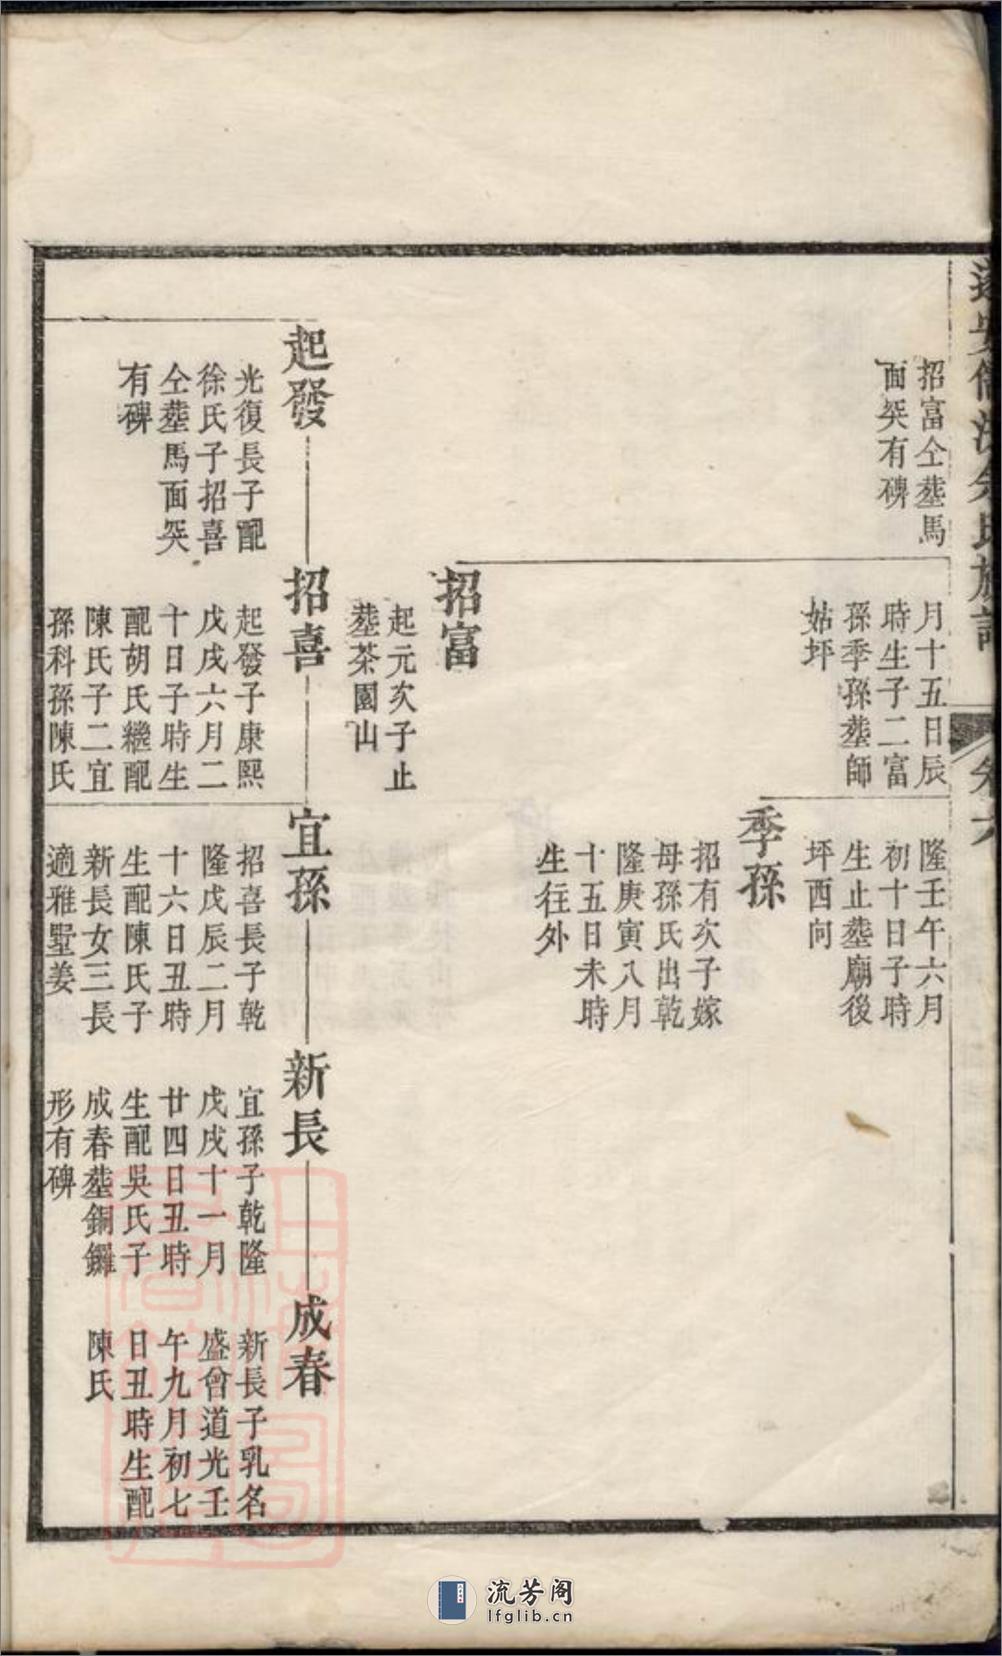 卷六
招富仝塟馬
面筴有碑
月十五日辰
時生子二富
孫季孫塟師
姑坪
隆壬午六月
初十日子時
生止塟廟後
坪西向
季孫
招有次子嫁
母孫氏出乾
隆庚寅八月
十五日未時
生往外
招富
起元次子止
塟茶園山
起發
光復長子配
徐氏子招喜
仝塟馬面筴
有碑
招喜
起發子康熙
戊戌六月二
十日子時生
配胡氏繼配
陳氏子二宜
孫科孫陳氏
宜孫
招喜長子乾
隆戊辰二月
十六日丑時
生配陳氏子
新長女三長
適雅墅姜
新長
宜孫子乾隆
戊戌十一月
廿四日丑時
生配吳氏子
成春塟銅鑼
形有碑
成春
新長子乳名
盛曾道光壬
午九月初七
日丑時生配
陳氏
流芳阁
lfglib.cn